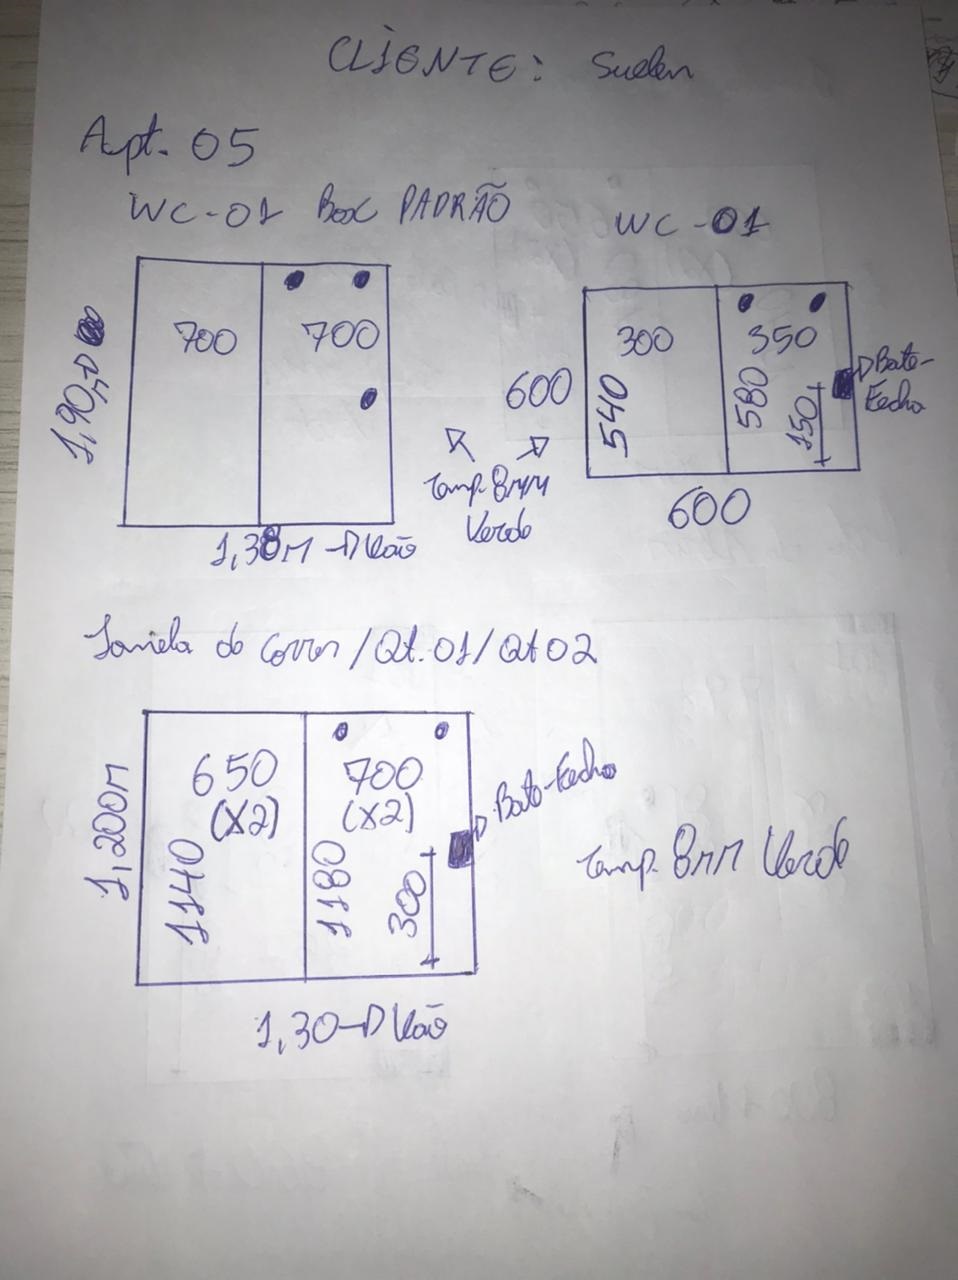 CLIENTE: Suelen
Apt. 05
WC-01 Box PADRÃO
1,90
700
700
1,38M → Vão
WC-01
600
300
540
350
580
150
Bate-
Fecha
600
Temp. 8MM
Verde
Janela de Correr / Qt. 01 / Qt 02
1,200M
650
(X2)
1140
700
(X2)
1180
300
Bate-Fecha
1,30 → Vão
Temp. 8MM Verde